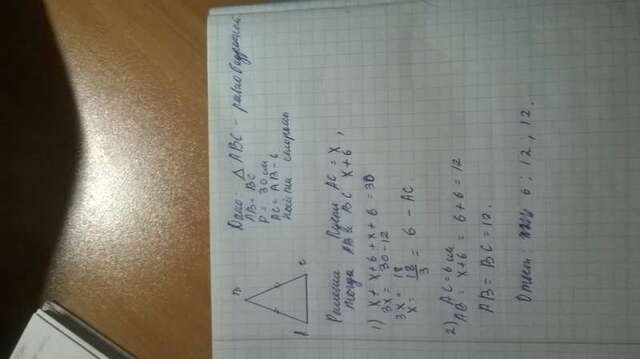 Дано: △ ABC - равнобедренный
AB = BC
P = 30 см
AC = AB - 6
найти стороны
B
A
C
Решение Пусть AC = x,
тогда AB и BC x+6
1) x + x+6 + x+6 = 30
3x = 30 - 12
3x = 18
x = 18/3 = 6 - AC
2) AC = 6 см
AB = x+6 = 6+6 = 12
AB = BC = 12.
Ответ: 6; 12; 12.